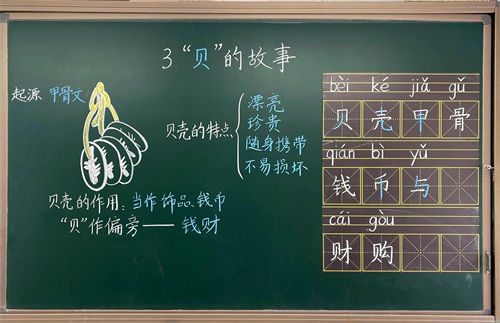 3 “贝”的故事
起源 甲骨文
贝壳的特点
漂亮
珍贵
随身携带
不易损坏
贝壳的作用：当作饰品、钱币
“贝”作偏旁——钱财
bèi ké jiǎ gǔ
贝 壳 甲 骨
qián bì yǔ
钱 币 与
cái gòu
财 购